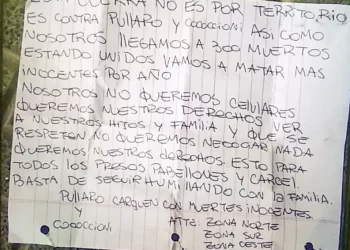 GUERRA NO ES POR TERRITORIO
ES CONTRA PULLARO Y COCOCCIONI ASI COMO
NOSOTROS LLEGAMOS A 300 MUERTOS
ESTANDO UNIDOS VAMOS A MATAR MAS
INOCENTES POR AÑO
NOSOTROS NO QUEREMOS CELULARES
QUEREMOS NUESTROS DERECHOS VER
A NUESTROS HITOS Y FAMILIA Y QUE SE
RESPETEN NO QUEREMOS NEGOCIAR NADA
QUEREMOS NUESTROS DERECHOS ESTO PARA
TODOS LOS PRESOS PABELLONES Y CARCEL
BASTA DE SEGUIR HUMILLANDO CON LA FAMILIA.
PULLARO CARGUEN CON MUERTES INOCENTES.
Y
COCOCCIONI
ATTE: ZONA NORTE
ZONA SUR
ZONA OESTE